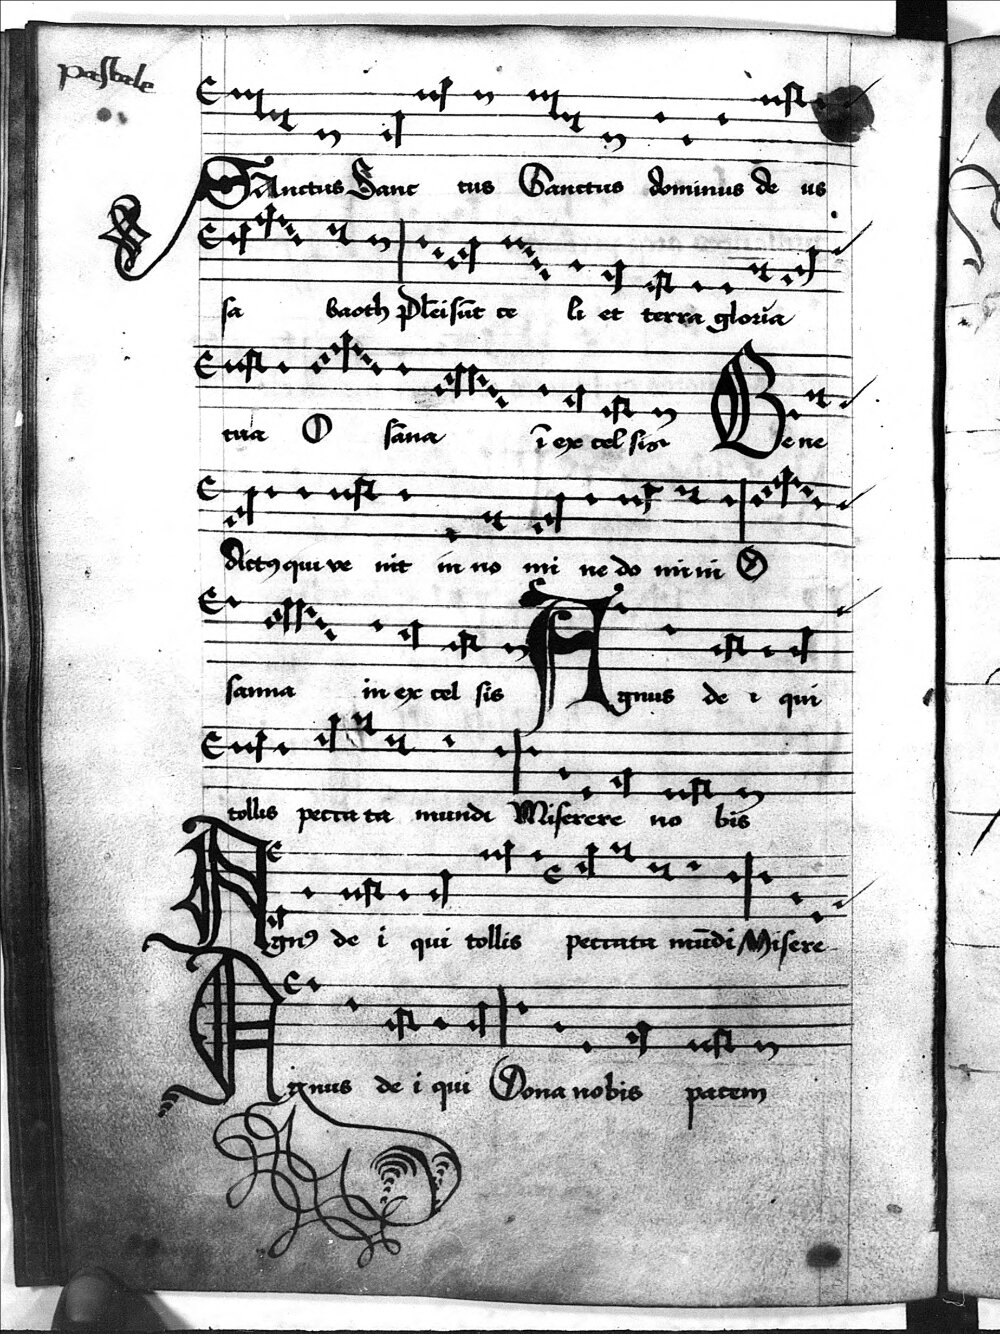 paschale
Sanctus Sanc tus Sanctus dominus de us
sa baoth Pleī sūt ce li et terra gloria
tua O sāna ī ex cel sis Be ne
dictꝯ qui ve nit in no mi ne do mi ni O
sanna in ex cel sis Agnus de i qui
tollis peccata mundi Miserere no bis
Agnꝯ de i qui tollis peccata mūdi Misere
Agnus de i qui Dona nobis pacem